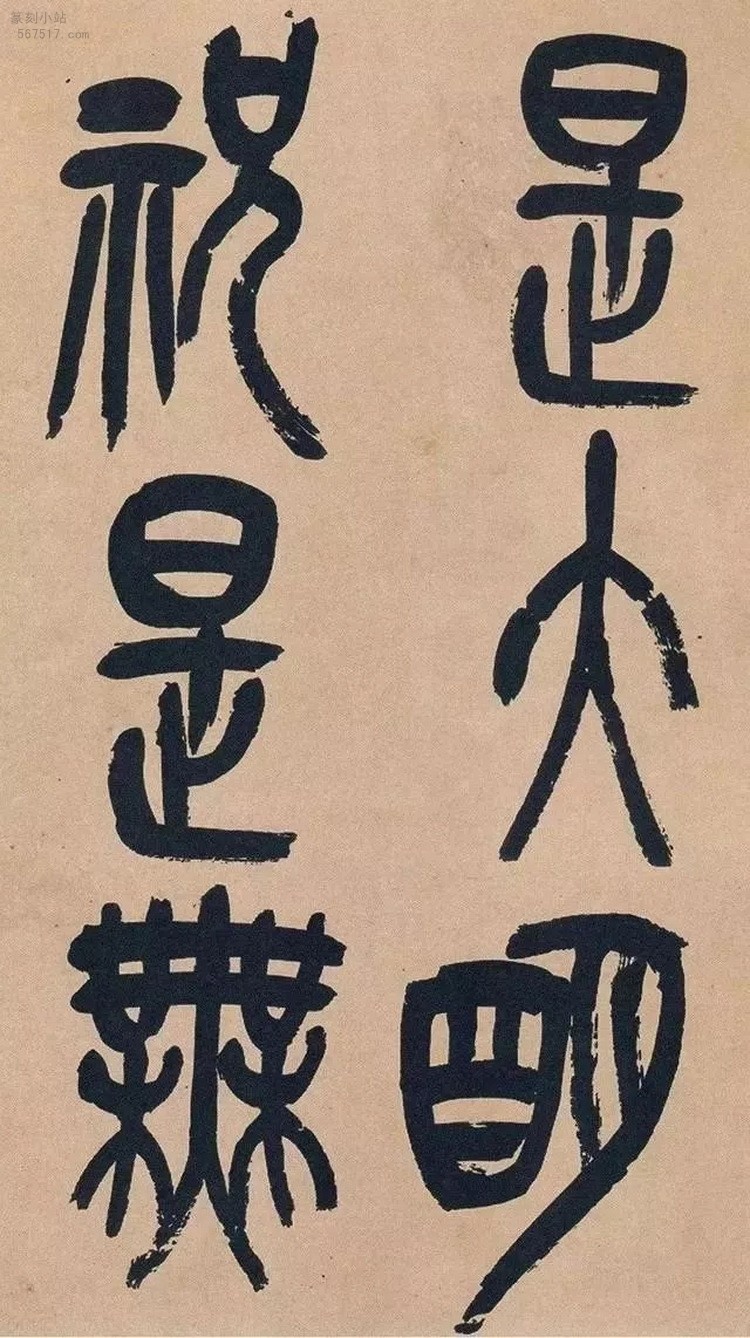 篆刻小站
567517.com
是大明
祝是無